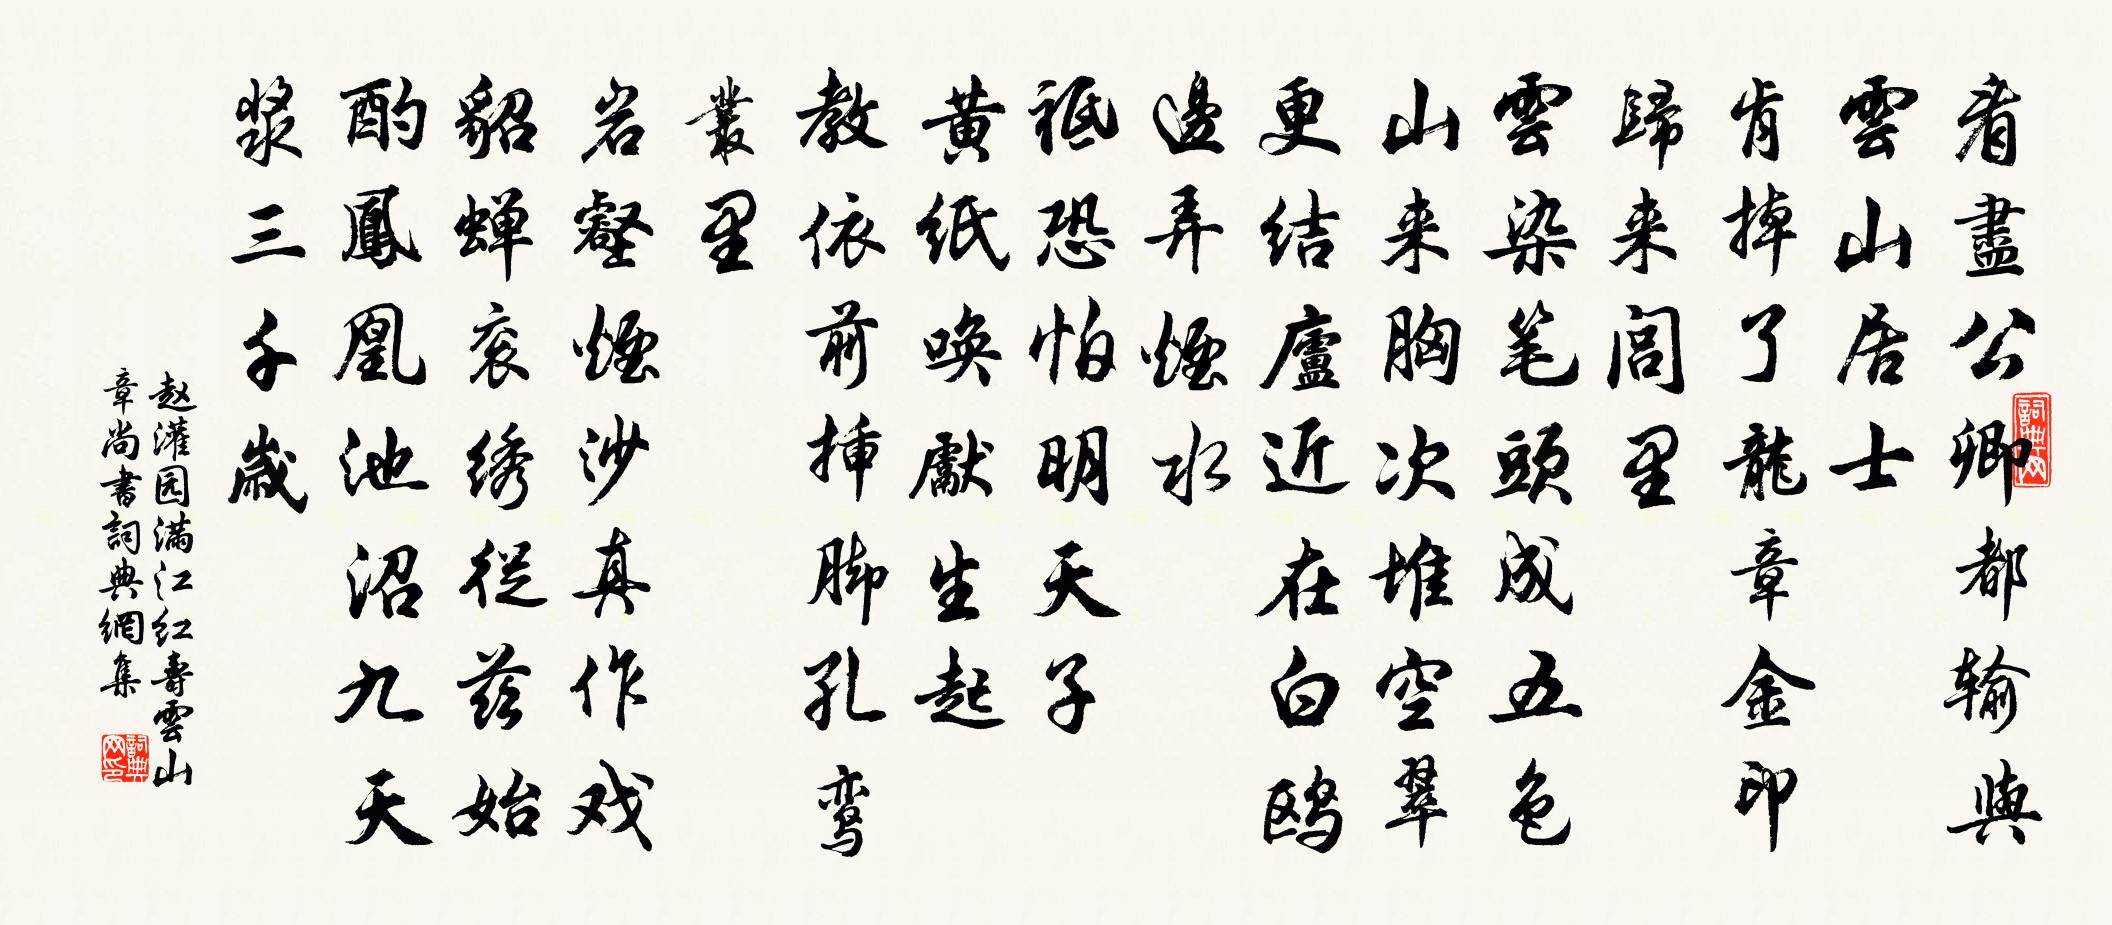 看盡公卿都輸與
雲山居士
肯掉了龍章金印
歸来閭里
雲染笔頭成五色
山来胸次堆空翠
更结廬近在白鸥
邊弄煙水
祗恐怕明天子
黄纸唤獻生起
教依前挿脚孔鸾
叢里
岩壑煙沙真作戏
貂蝉衮绣從兹始
酌鳳凰池沼九天
漿三千歲
赵灌园满江红壽雲山
章尚書詞典網集
詞典网
詞典网印